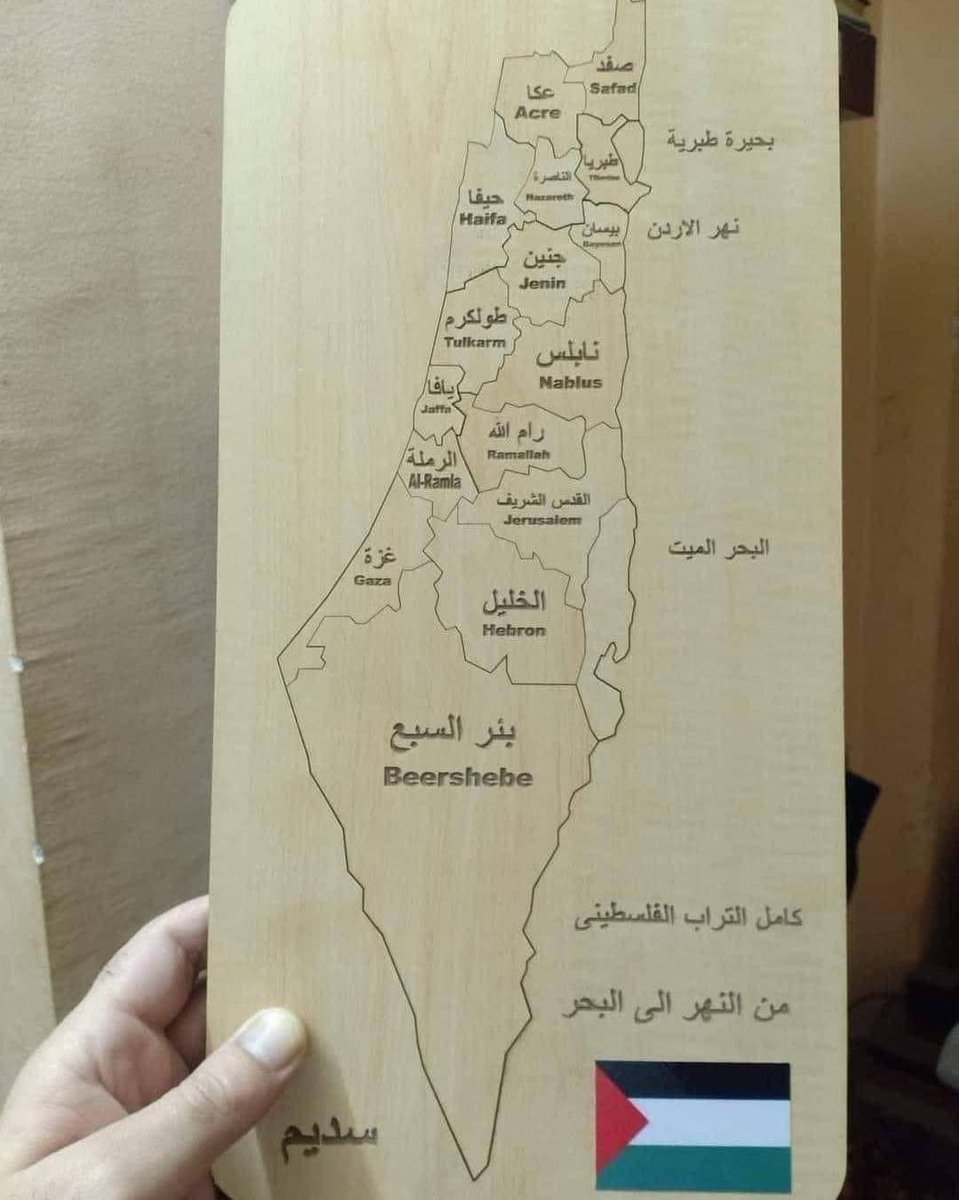 صفد
Safad
عكا
Acre
بحيرة طبرية
طبريا
Tiberias
الناصرة
Nazareth
حيفا
Haifa
نهر الاردن
بيسان
جنين
Jenin
طولكرم
Tulkarm
نابلس
Nablus
يافا
Jaffa
رام الله
Ramallah
الرملة
Al-Ramla
القدس الشريف
Jerusalem
البحر الميت
غزة
Gaza
الخليل
Hebron
بئر السبع
Beershebe
كامل التراب الفلسطيني
من النهر الى البحر
سديم